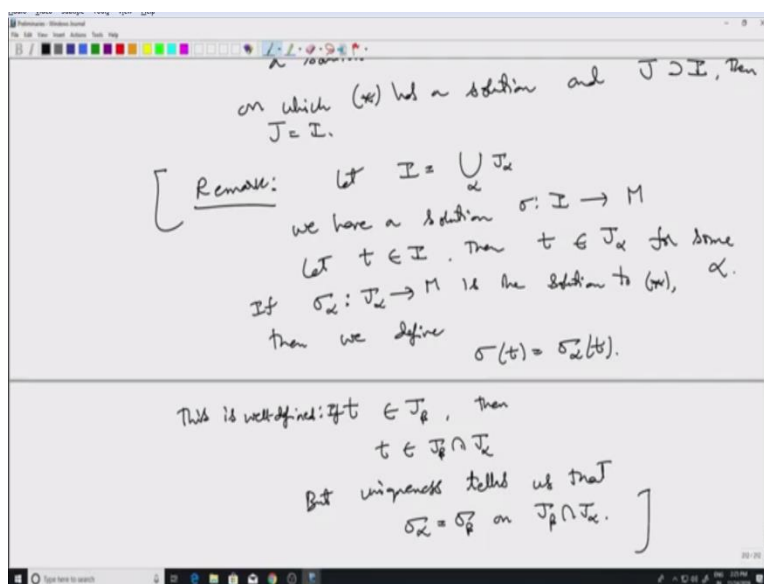 Preliminaries - Windows Journal
File Edit View Insert Actions Tools Help
on which (**) has a solution and J ⊃ I, then
J = I.
Remark: Let I = ⋃_α J_α
we have a solution σ: I → M
Let t ∈ I. Then t ∈ J_α for some α.
If σ_α: J_α → M is the solution to (**),
then we define
σ(t) = σ_α(t).
This is well-defined: If t ∈ J_β, then
t ∈ J_β ∩ J_α
But uniqueness tells us that
σ_α = σ_β on J_β ∩ J_α.
Type here to search